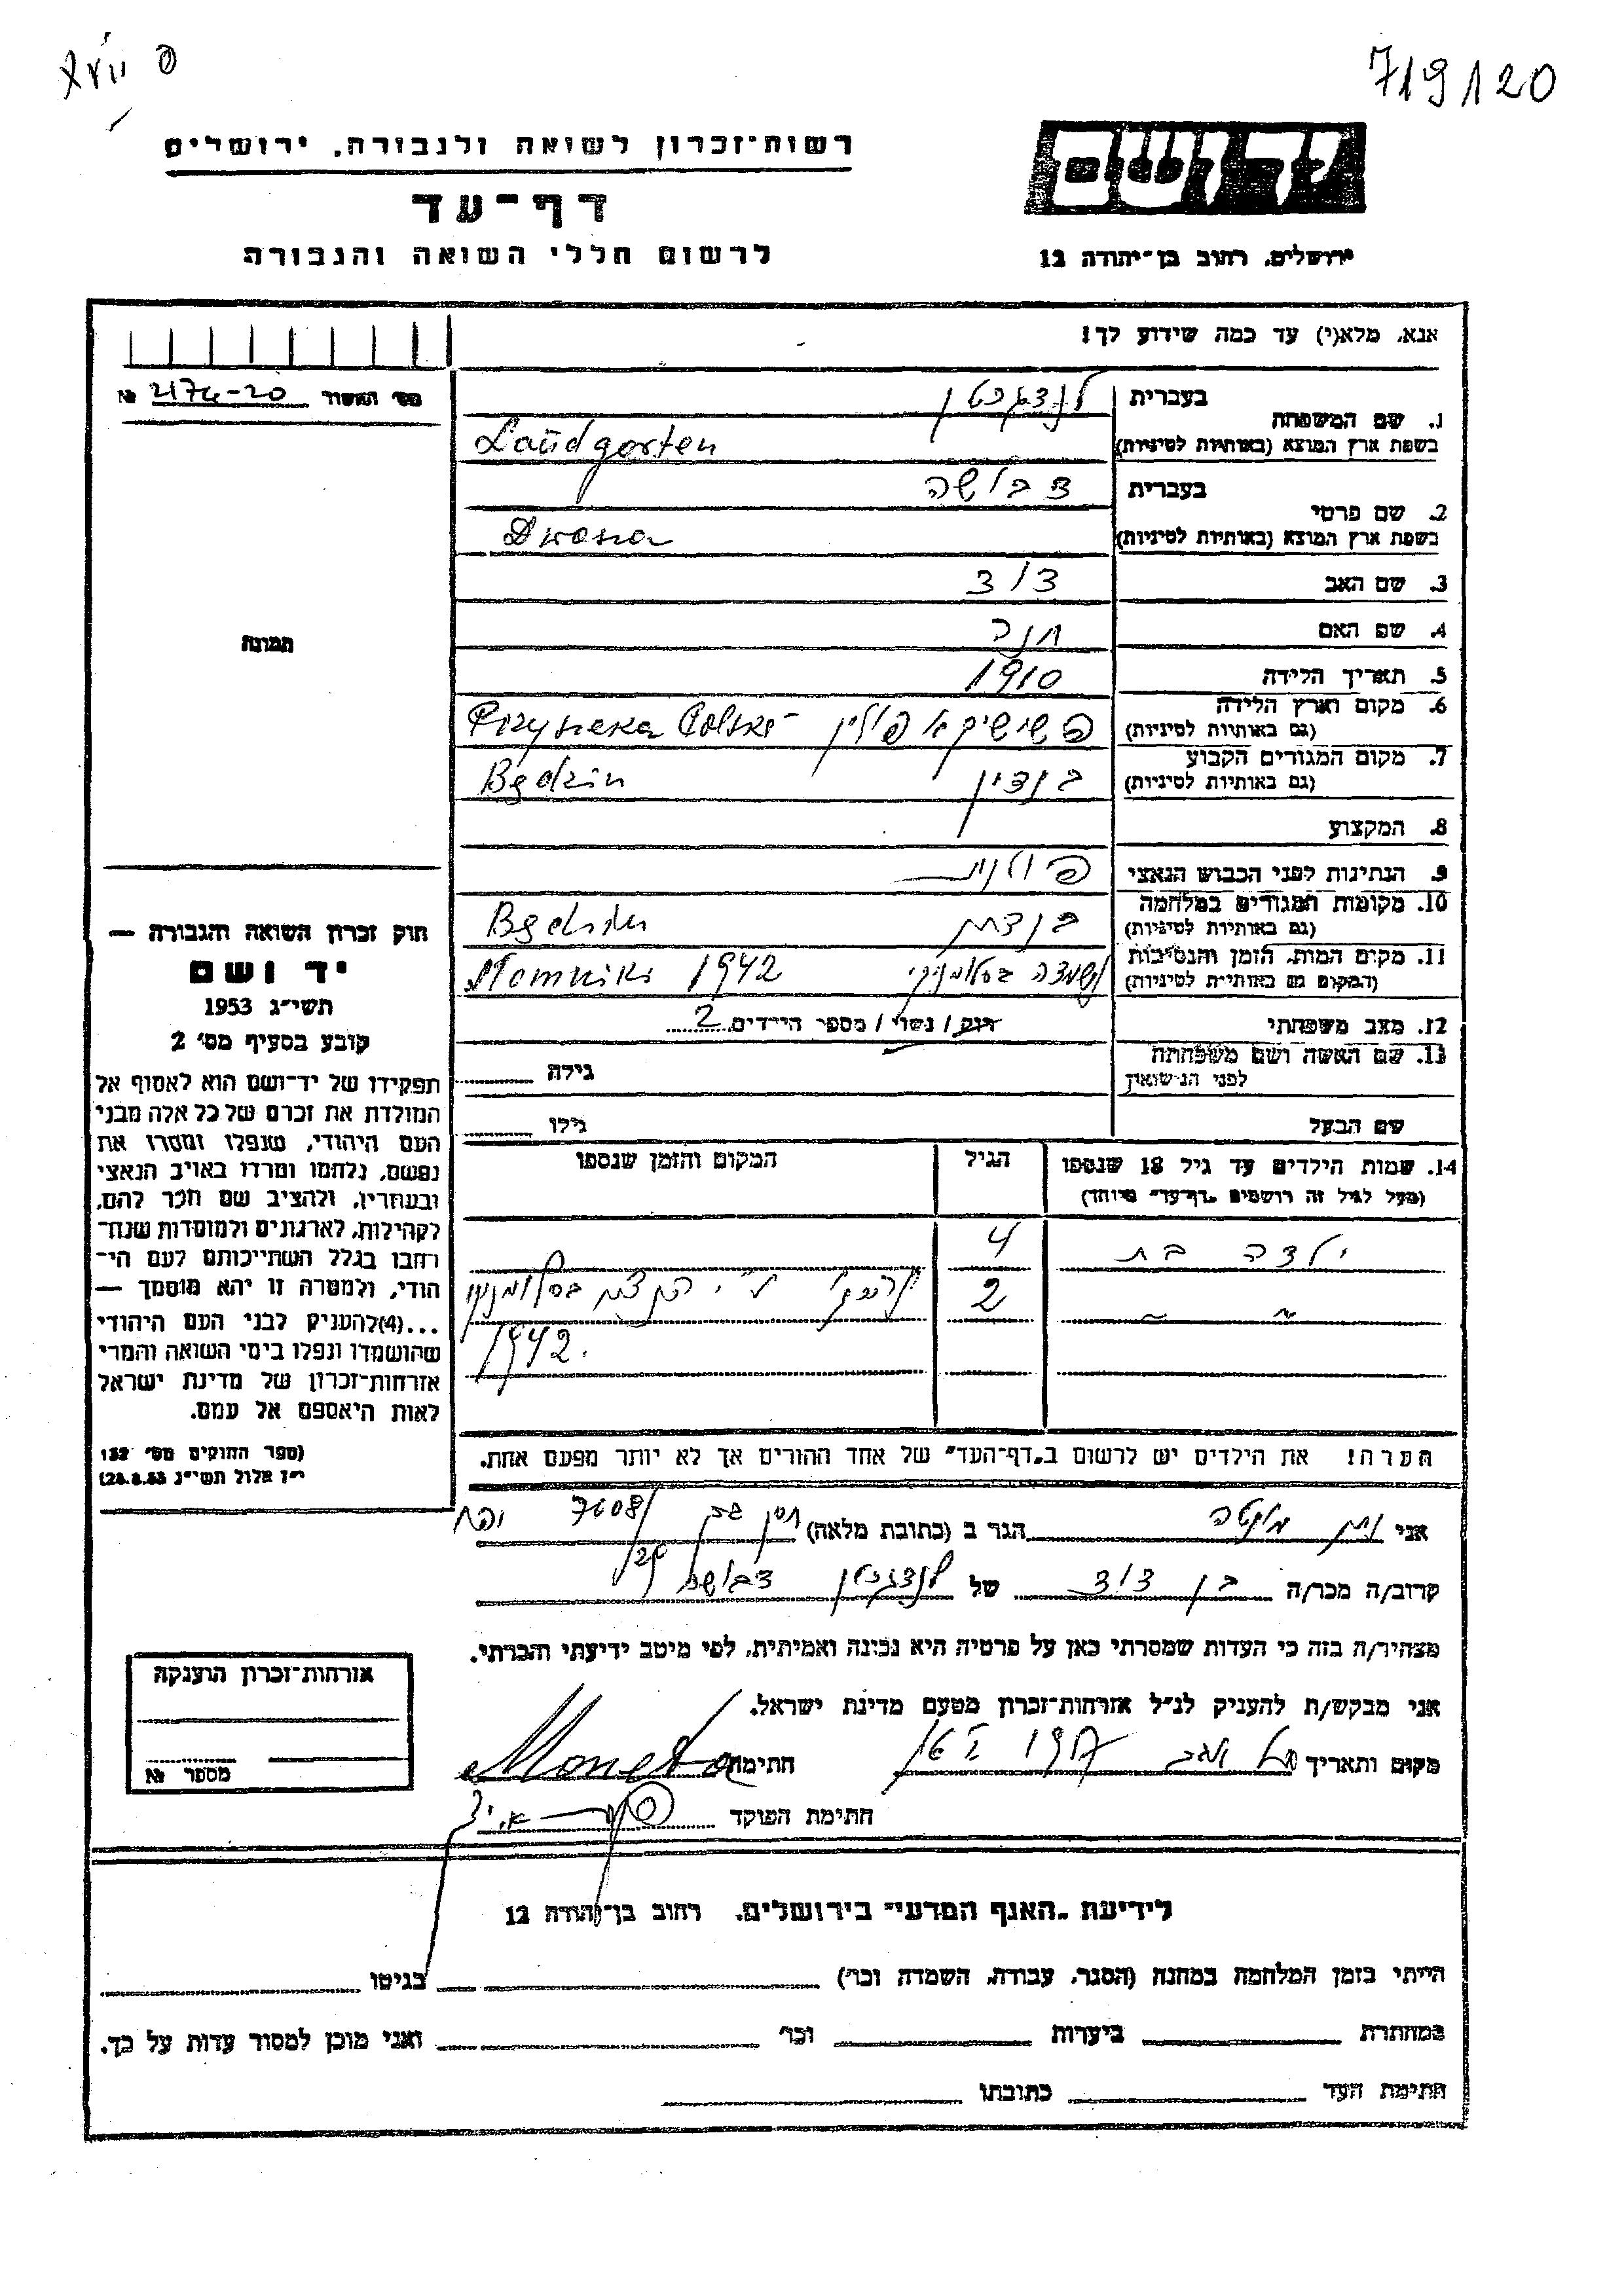 719120
רשות־זכרון לשואה ולגבורה, ירושלים
דף־עד
לרשום חללי השואה והגבורה
ירושלים, רחוב בן־יהודה 12
אנא, מלא(י) עד כמה שידוע לך!
מס׳ האשור 2174-20 №
1. שם המשפחה
בעברית
בשפת ארץ המוצא (באותיות לטיניות) Landgarten
2. שם פרטי
בעברית
בשפת ארץ המוצא (באותיות לטיניות)
3. שם האב דוד
4. שם האם חנה
5. תאריך הלידה 1910
6. מקום וארץ הלידה
(גם באותיות לטיניות) פולין
7. מקום המגורים הקבוע
(גם באותיות לטיניות) בנדין Będzin
8. המקצוע
9. הנתינות לפני הכבוש הנאצי פולנית
10. מקומות המגורים במלחמה
(גם באותיות לטיניות) בנדין Będzin
11. מקום המות, הזמן והנסיבות
(המקום גם באותיות לטיניות) 1942
12. מצב משפחתי רוק / נשוי / מספר הילדים 2
13. שם האשה ושם משפחתה
לפני הנישואין גילה
שם הבעל גילו
14. שמות הילדים עד גיל 18 שנספו
(מעל לגיל זה רושמים „דף־עד״ מיוחד)
הגיל
המקום והזמן שנספו
ילדה בת 4
" " 2
1942.
הערה! את הילדים יש לרשום ב„דף־העד״ של אחד ההורים אך לא יותר מפעם אחת.
תמונה
חוק זכרון השואה והגבורה —
יד ושם
תשי״ג 1953
קובע בסעיף מס׳ 2
תפקידו של יד־ושם הוא לאסוף אל
המולדת את זכרם של כל אלה מבני
העם היהודי, שנפלו ומסרו את
נפשם, נלחמו ומרדו באויב הנאצי
ובעוזריו, ולהציב שם וזכר להם,
לקהילות, לארגונים ולמוסדות שנח־
רבו בגלל השתייכותם לעם הי־
הודי, ולמטרה זו יהא מוסמך —
...(4)להעניק לבני העם היהודי
שהושמדו ונפלו בימי השואה והמרי
אזרחות־זכרון של מדינת ישראל
לאות היאספם אל עמם.
(ספר החוקים מס׳ 132
י״ז אלול תשי״ג 28.8.53)
אני הגר ב (כתובת מלאה)
קרוב/ה מכר/ה בן דוד של
מצהיר/ה בזה כי העדות שמסרתי כאן על פרטיה היא נכונה ואמיתית, לפי מיטב ידיעתי והכרתי.
אני מבקש/ת להעניק לנ״ל אזרחות־זכרון מטעם מדינת ישראל.
מקום ותאריך חתימה Moneta
חתימת הפוקד
אזרחות־זכרון הוענקה
מספר №
לידיעת „האגף המדעי״ בירושלים, רחוב בן־יהודה 12
הייתי בזמן המלחמה במחנה (הסגר, עבודה, השמדה וכו׳) בגיטו
במחתרת ביערות וכו׳ ואני מוכן למסור עדות על כך.
חתימת העד כתובתו